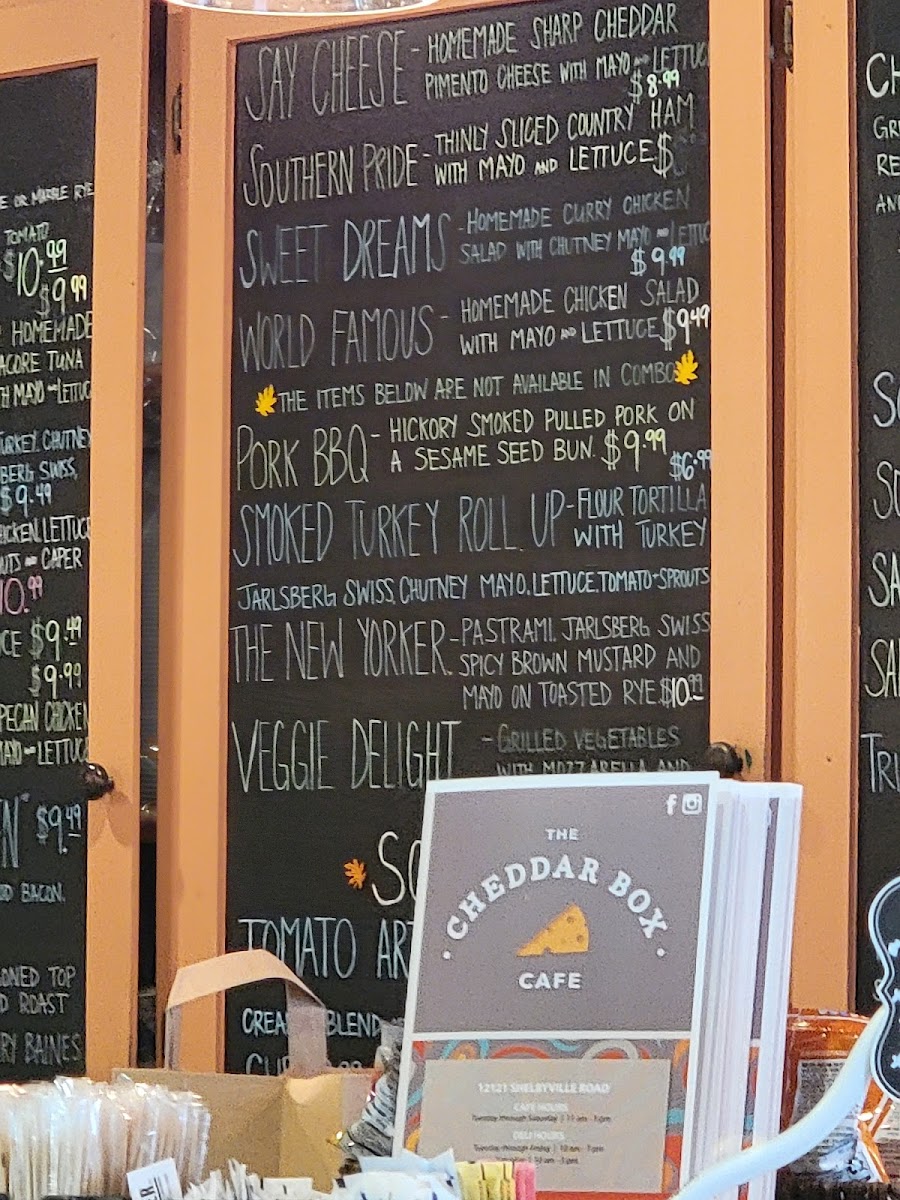 E OR MARBLE RYE
TOMATO
$10.99
$9.99
HOMEMADE
ACORE TUNA
TH MAYO LETTUC
TURKEY, CHUTNEY
BERG SWISS,
$9.49
HICKEN, LETTUCE
CAPER
10.99
CE $9.49
$9.99
PECAN CHICKEN
MAYO LETTUC
N" $9.49
BACON.
ONED TOP
D ROAST
RY BAINES
SAY CHEESE - HOMEMADE SHARP CHEDDAR
PIMENTO CHEESE WITH MAYO AND LETTUC
$8.99
SOUTHERN PRIDE - THINLY SLICED COUNTRY HAM
WITH MAYO AND LETTUCE $
SWEET DREAMS - HOMEMADE CURRY CHICKEN
SALAD WITH CHUTNEY MAYO AND LETTUC
$9.99
WORLD FAMOUS - HOMEMADE CHICKEN SALAD
WITH MAYO AND LETTUCE $9.49
THE ITEMS BELOW ARE NOT AVAILABLE IN COMBO
PORK BBQ - HICKORY SMOKED PULLED PORK ON
A SESAME SEED BUN. $9.99
$6.99
SMOKED TURKEY ROLL UP - FLOUR TORTILLA
WITH TURKEY
JARLSBERG SWISS, CHUTNEY MAYO, LETTUCE, TOMATO - SPROUTS
THE NEW YORKER - PASTRAMI, JARLSBERG SWISS
SPICY BROWN MUSTARD AND
MAYO ON TOASTED RYE $10.99
VEGGIE DELIGHT - GRILLED VEGETABLES
WITH MOZZARELLA AND
SO
TOMATO ART
CREA BLEND
CUP
CH
GR
RE
AN
SO
SO
SA
SA
TRI
THE
CHEDDAR BOX
CAFE
12121 SHELBYVILLE ROAD
CAFE HOURS
Tuesday through Saturday | 11 am - 3 pm
DELI HOURS
Tuesday through Friday | 10 am - 7 pm